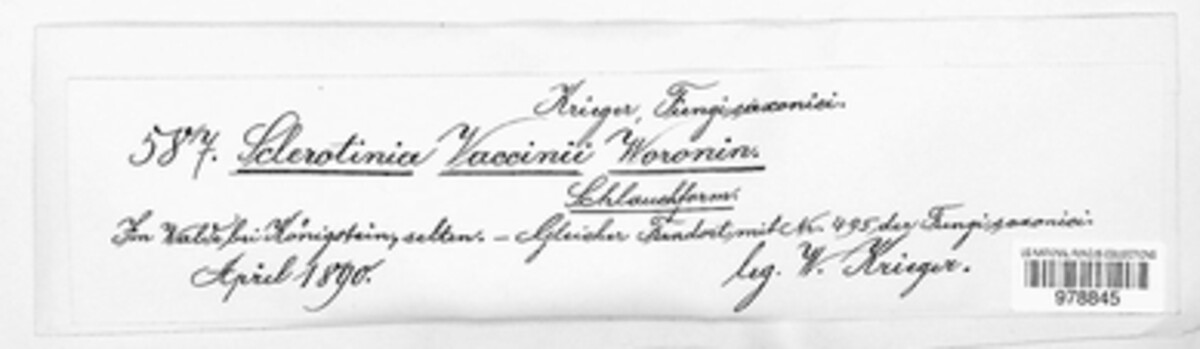 Krieger, Fungi saxonici.
587. Sclerotinia Vaccinii Woronin.
Schlauchform.
Im Walde bei Königstein, selten. – Gleicher Fundort mit Nr. 495 der Fungi saxonici.
April 1890.
leg. W. Krieger.
US NATIONAL FUNGUS COLLECTIONS
978845